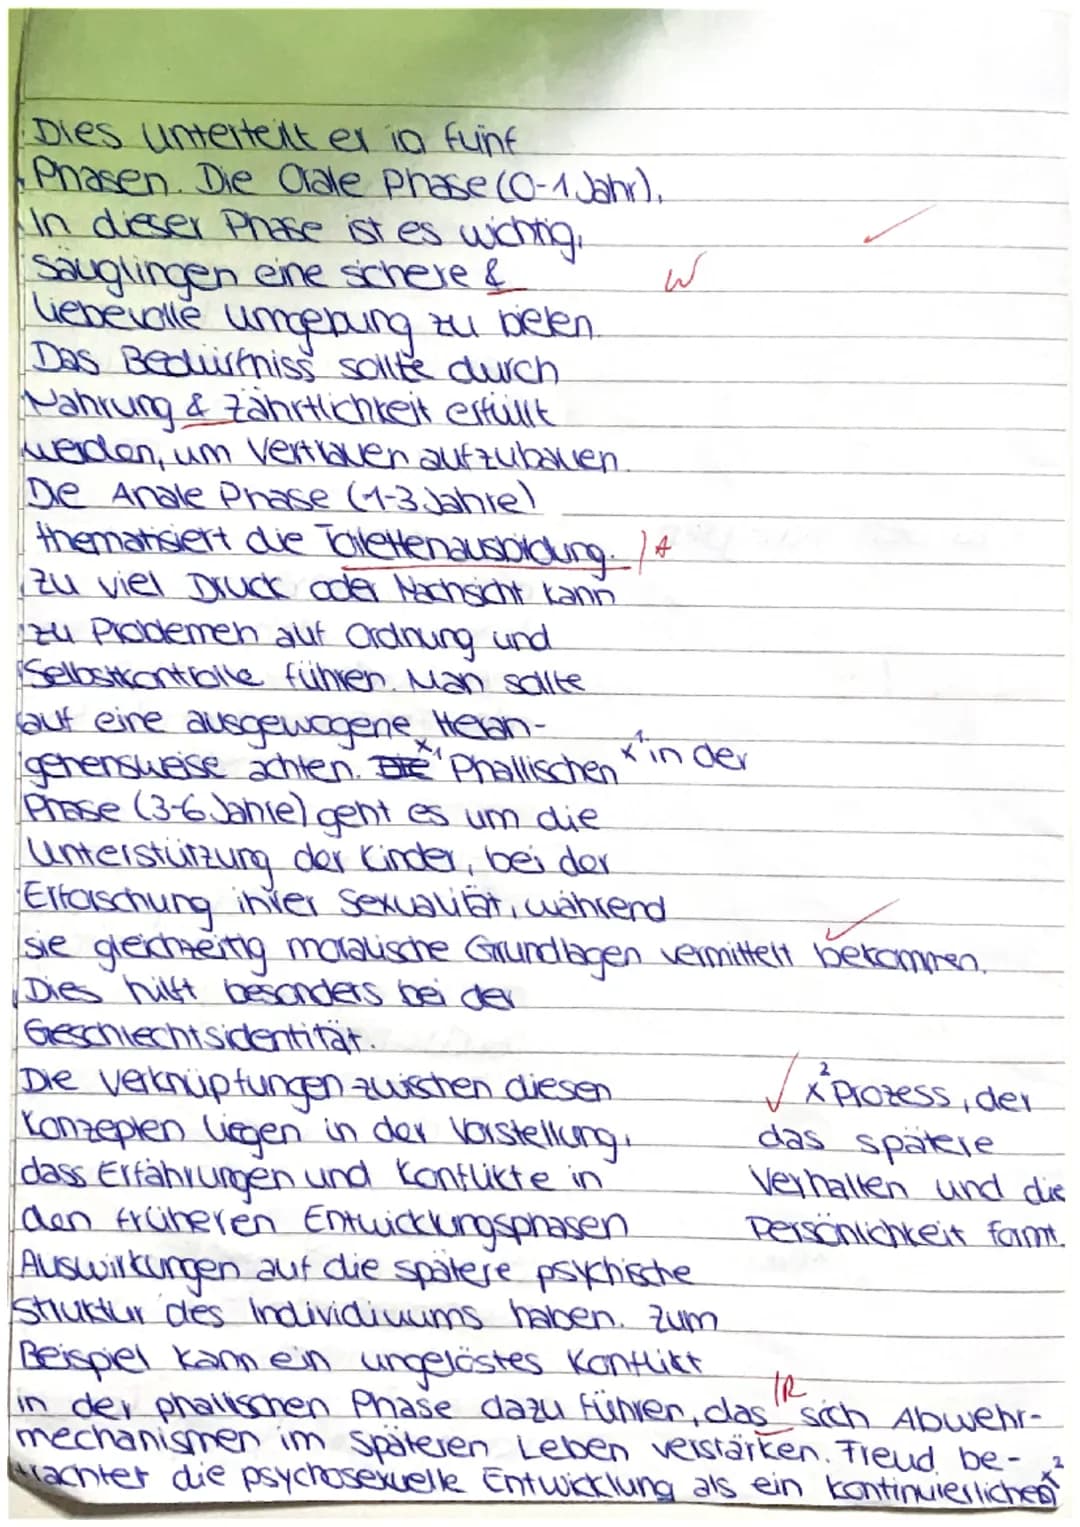 Dies unterteilt er in fünf
Phasen. Die Orale Phase (0-1 Jahr),
In dieser Phase ist es wichtig,
säuglingen eine sichere &
W
liebevolle umgebung zu bieten.
Das Bedürfniss sollte durch
Nahrung & Zährtlichkeit erfüllt
werden, um Vertrauen aufzubauen.
Die Anale Phase (1-3 Jahre)
thematisiert die Toilettenausbildung. | A
Zu viel Druck oder Nachsicht kann
zu Problemen auf Ordnung und
Selbstkontrolle führen. Man sollte
auf eine ausgewogene Heran-
gehensweise achten. Die x1 Phallischen x1 in der
Phase (3-6 Jahre) geht es um die
Unterstützung der Kinder, bei der
Erforschung ihrer Sexualität, während
sie gleichzeitig moralische Grundlagen vermittelt bekommen.
Dies hilft besonders bei der
Geschlechtsidentität.
Die Verknüpfungen zwischen diesen
Konzepten liegen in der Vorstellung,
dass Erfahrungen und Konflikte in
den früheren Entwicklungsphasen
Auswirkungen auf die spätere psychische
Struktur des Individiuums haben. Zum
Beispiel kann ein ungelöstes Konflikt
|R
in der phallischen Phase dazu führen, das sich Abwehr-
mechanismen im späteren Leben verstärken. Freud be-
trachtet die psychosexuelle Entwicklung als ein kontinuierlichen x2
x2 Prozess, der
das spätere
Verhalten und die
Persönlichkeit formt.